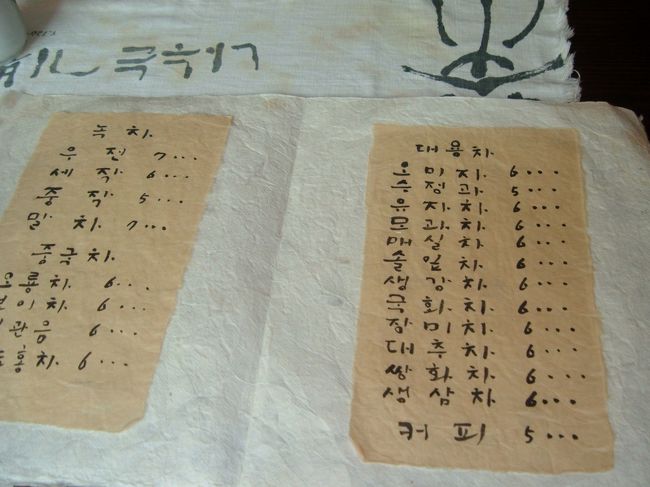 녹차
우전 7...
세작 6...
중작 5...
말차 7...
중국차
오룡차 6...
보이차 6...
관음 6...
홍차 6...
대용차
오미자 6...
수정과 5...
유자차 6...
모과차 6...
매실차 6...
솔잎차 6...
생강차 6...
국화차 6...
장미차 6...
대추차 6...
쌍화차 6...
생삼차 6...
커피 5...